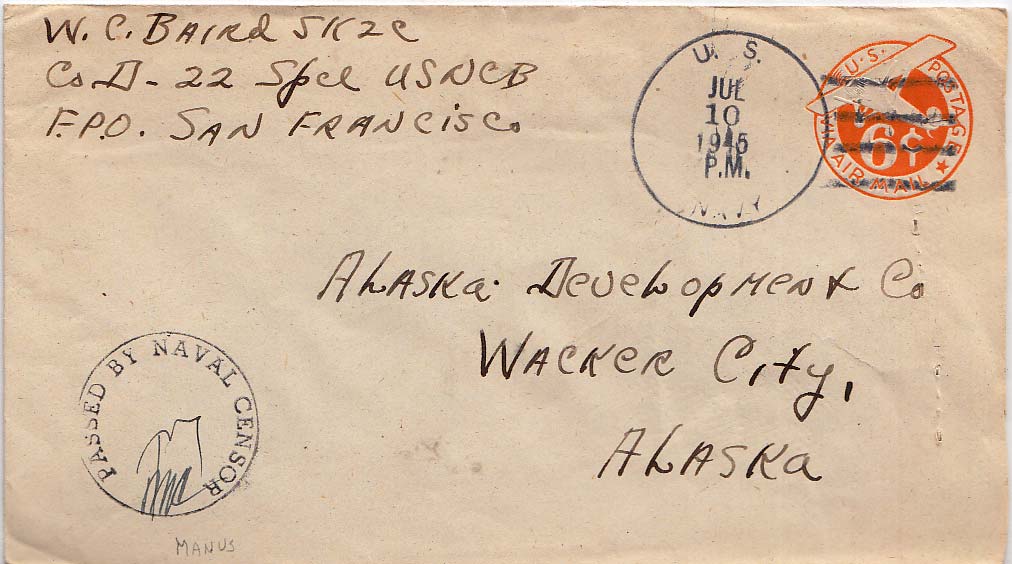 W. C. Baird SK2c
Co. D - 22 Spcl USNCB
F.P.O. San Francisco
U. S.
JUL
10
1945
P.M.
NAVY
U.S. POSTAGE
VIA AIR MAIL
6¢
Alaska Development Co
Wacker City,
Alaska
PASSED BY NAVAL CENSOR
MANUS